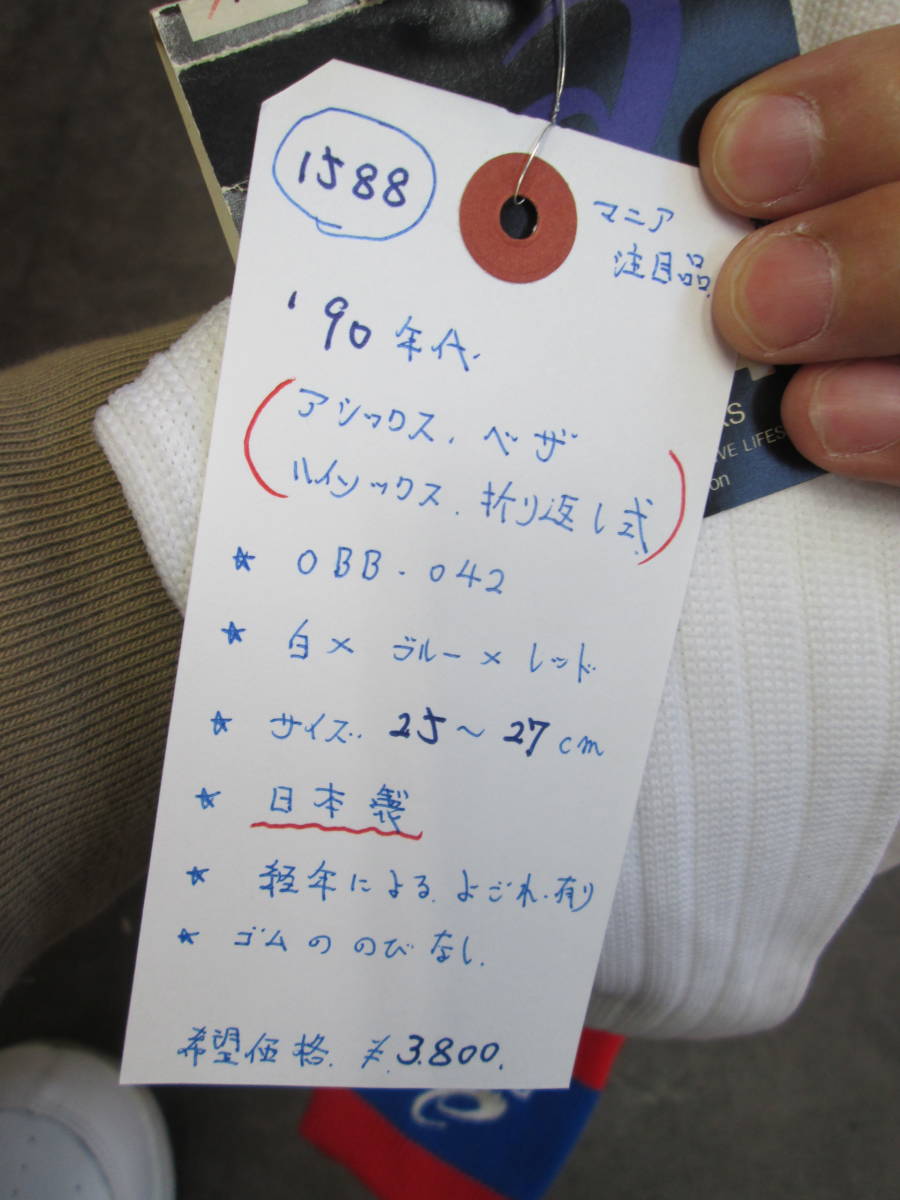 1588
マニア
注目品
'90年代
アシックス.ベザ
ハイソックス.折り返し式
★ OBB-042
★ 白×ブルー×レッド
★ サイズ.25～27cm
★ 日本製
★ 経年による.よごれ.有り
★ ゴムののびなし.
希望価格.¥3.800.
VE LIFES
on